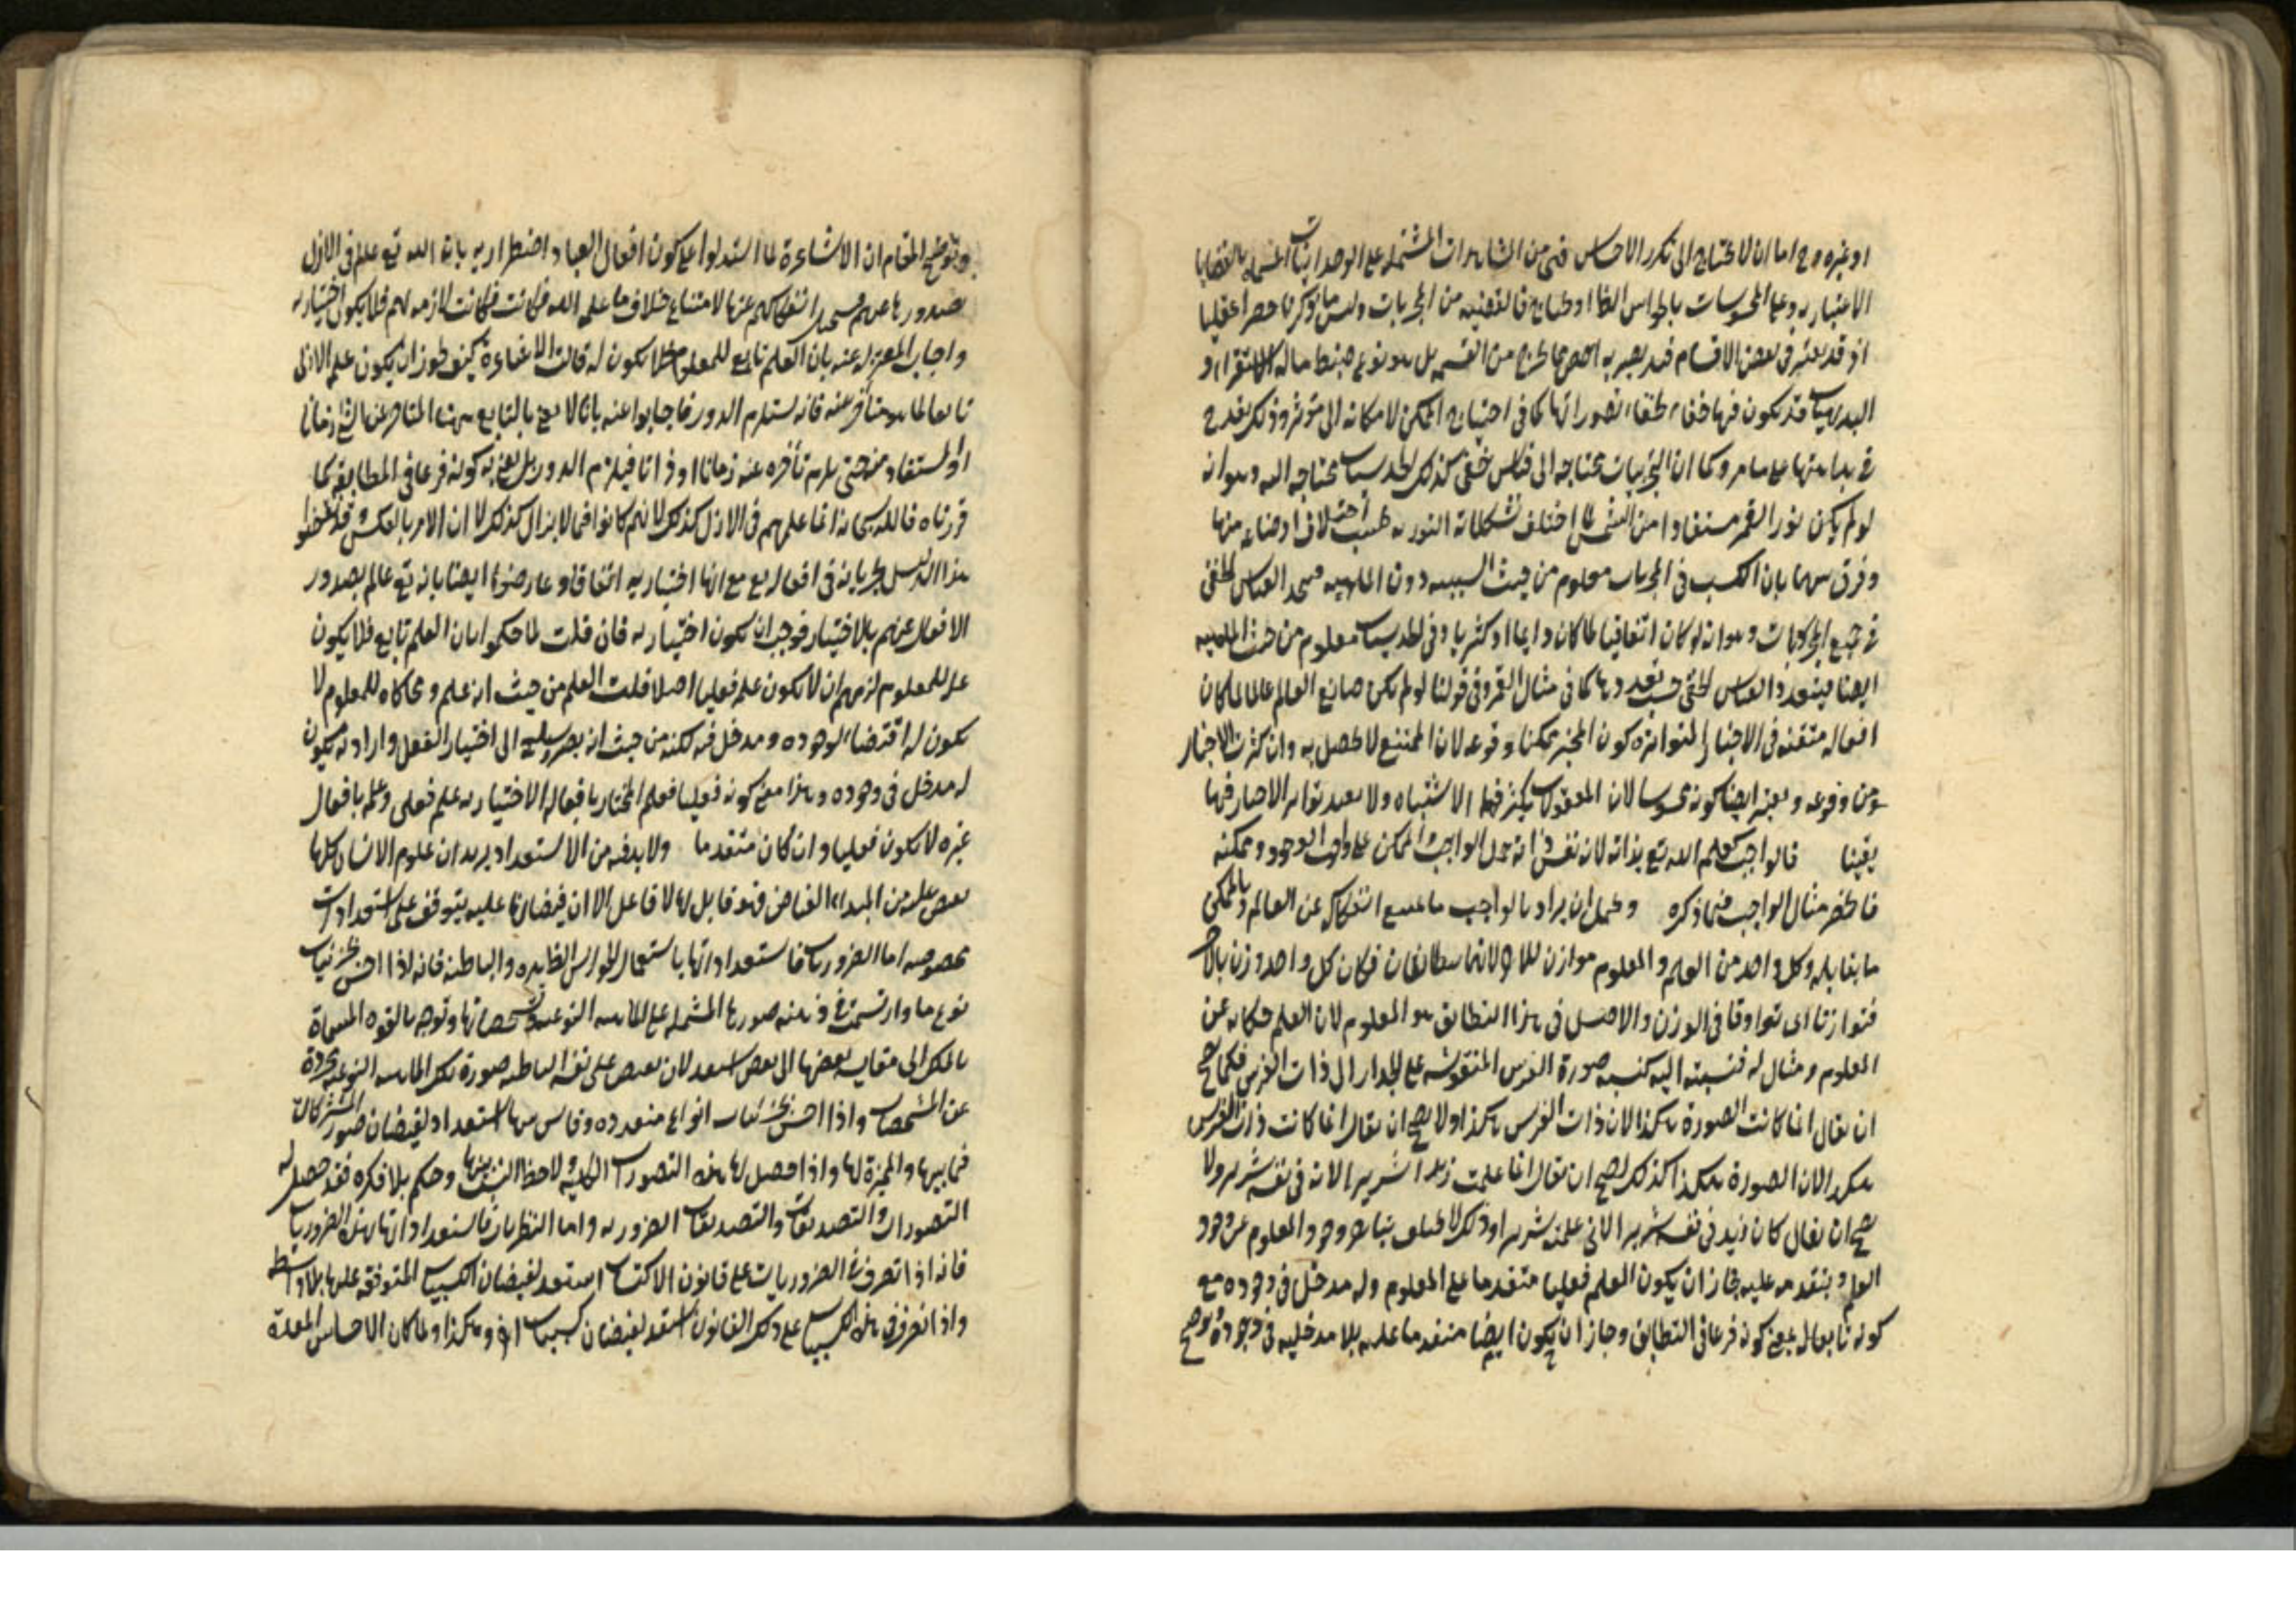 او غيره وح اما ان لا يحتاج الى تكرر الاحساس فهى من المشاهدات المشتملة على الوجدانيات المسماة بالقضايا
الاعتبارية وعلى المحسوسات بالحواس الظا او يحتاج فالقضية من المجربات وليس ما ذكرنا حصرا عقليا
اذ قد يعتبر فى بعض الاقسام قيد يصير به اخص مما يخرج من القسمة بل هو نوع ضبط ماله الاستقراء و
البديهيات قد يكون فيها خفاء لخفاء تصوراتها كما فى احتياج الممكن لامكانه الى مؤثر وذلك لا يقدح
فى بداهتها على ما مر وكما ان التجربيات محتاجة الى قياس خفى كذلك الحدسيات محتاجة اليه وهو انه
لو لم يكن نور القمر مستفادا من الشمس لما اختلف تشكلاته النورية بحسب اختلاف اوضاعه منها
وفرق بينهما بان السبب فى المجربات معلوم من حيث السببية دون الماهية فيتحد القياس الخفى
فى جميع المجربات وهو انه لو كان اتفاقيا لما كان دائما او كثريا وفى الحدسيات معلوم من حيث الماهية
ايضا فيتعدد القياس الخفى حسب تعددها كما فى مثال القمر وفى قولنا لو لم يكن صانع العالم عالما لما كان
افعاله متقنة فى الاخبار المتواترة كون المخبر ممكنا وقوعه لان الممتنع لا يحصل به وان كثرت الاخبار
عن وقوعه ويعتبر ايضا كونه محسوسا لان المعقولات يكثر فيها الاشتباه ولا يفيد تواتر الاخبار فيها
يقينا فالواجب كعلم الله تع بذاته لانه نفس ذاته حمل الواجب والممكن على واجب الوجود وممكنه
فانحصر مثال الواجب فيما ذكره ويحتمل ان يراد بالواجب ما يمتنع انفكاكه عن العالم وبالممكن
ما يقابله وكل واحد من العلم والمعلوم موازن للاخر لانهما متطابقان فكان كل واحد وزن بالاخر
فتوازنا اى توافقا فى الوزن والاصل فى هذا التطابق هو المعلوم لان العلم حكاية عن
المعلوم ومثال له فنسبته اليه كنسبة صورة الفرس المنقوشة على الجدار الى ذات الفرس فكما يصح
ان يقال انما كانت الصورة هكذا لان ذات الفرس هكذا ولا يصح ان يقال انما كانت ذات الفرس
هكذا لان الصورة هكذا كذلك يصح ان يقال انما علمت زيدا شريرا لانه فى نفسه شرير ولا
يصح ان يقال كان زيد فى نفسه شريرا لانى علمته شريرا وذلك لا يختلف بتاخر وجود المعلوم عن وجود
العلم وبتقدمه عليه فجاز ان يكون العلم فعليا متقدما على المعلوم وله مدخل فى وجوده مع
كونه تابعا له بمعنى كونه فرعا فى التطابق وجاز ان يكون ايضا متقدما عليه بلا مدخلية فى وجوده وتوضيح
وتوضيح المقام ان الاشاعرة لما استدلوا على كون افعال العباد اضطرارية بان الله تع علم فى الازل
صدورها عنهم فيستحيل انفكاكهم عنها لامتناع خلاف ما علمه الله فكانت لازمة لهم فلا يكون اختيارية
واجاب المعتزلة عنه بان العلم تابع للمعلوم فلا يكون له قالت الاشاعرة كيف يجوز ان يكون علمه الازلى
تابعا لما هو متأخر عنه فانه يستلزم الدور فاجابوا عنه بانا لا نعنى بالتابع ههنا المتاخر عن الشئ زمانا
او المستفاد منه حتى يلزم تأخره عنه زمانا او ذاتا فيلزم الدور بل نعنى به كونه فرعا فى المطابقة كما
قررناه فالله سبحانه انما علمهم فى الازل كذلك لانهم كانوا فيما لا يزال كذلك لا ان الامر بالعكس وقد نقضوا
هذا الدليل بجريانه فى افعاله تع مع انها اختيارية اتفاقا وعارضوا ايضا بانه تع عالم بصدور
الافعال عنهم بالاختيار فوجب ان يكون اختيارية فان قلت لما حكموا بان العلم تابع فلا يكون
علة للمعلوم لزمهم ان لا يكون علم فعليا اصلا قلت العلم من حيث انه علم ومحاكاة للمعلوم لا
يكون له اقتضاء لوجوده ومدخل فيه لكنه من حيث انه يصير وسيلة الى اختيار الفعل وارادته يكون
له مدخل فى وجوده وهذا معنى كونه فعليا فعلم المختار بافعاله الاختيارية علم فعلى وعلمه بافعال
غيره لا يكون فعليا وان كان متقدما ولا بد فيه من الاستعداد يريد ان علوم الانسان كلها
يفيض عليه من المبداء الفياض فهو قابل لها لا فاعل الا ان فيضانها عليه يتوقف على استعدادات
مخصوصه اما الضروريات فاستعداداتها باستعمال الحواس الظاهرة والباطنة فانه اذا احس بجزئيات
نوع ما وارتسمت فى ذهنه صورها المشتملة على الماهية النوعية وتشخصاتها وتوجه بالقوة المسماة
بالفكر الى مقايسة بعضها الى بعض استعد لان يفيض على نفسه الناطقة صورة تلك الماهية النوعية مجردة
عن المشخصات واذا احس بجزئيات انواع متعددة وقاس بينها استعد لفيضان صور المشتركات
فيما بينها والمميزة لها واذا حصل لها هذه التصورات الكلية ولاحظ النسب بينها وحكم بلا فكرة فقد حصل له
التصورات والتصديقات والتصديقات الضرورية واما النظريات فاستعداداتها بهذه الضروريات
فانه اذا تصرف فى الضروريات على قانون الاكتساب استعد لفيضان الكسبيات المتوقفة عليها بلا واسطة
واذا تصرف فى هذه الكسبيات على ذلك القانون استعد لفيضان كسبيات اخر وهكذا ولما كان الاحساس المعدة